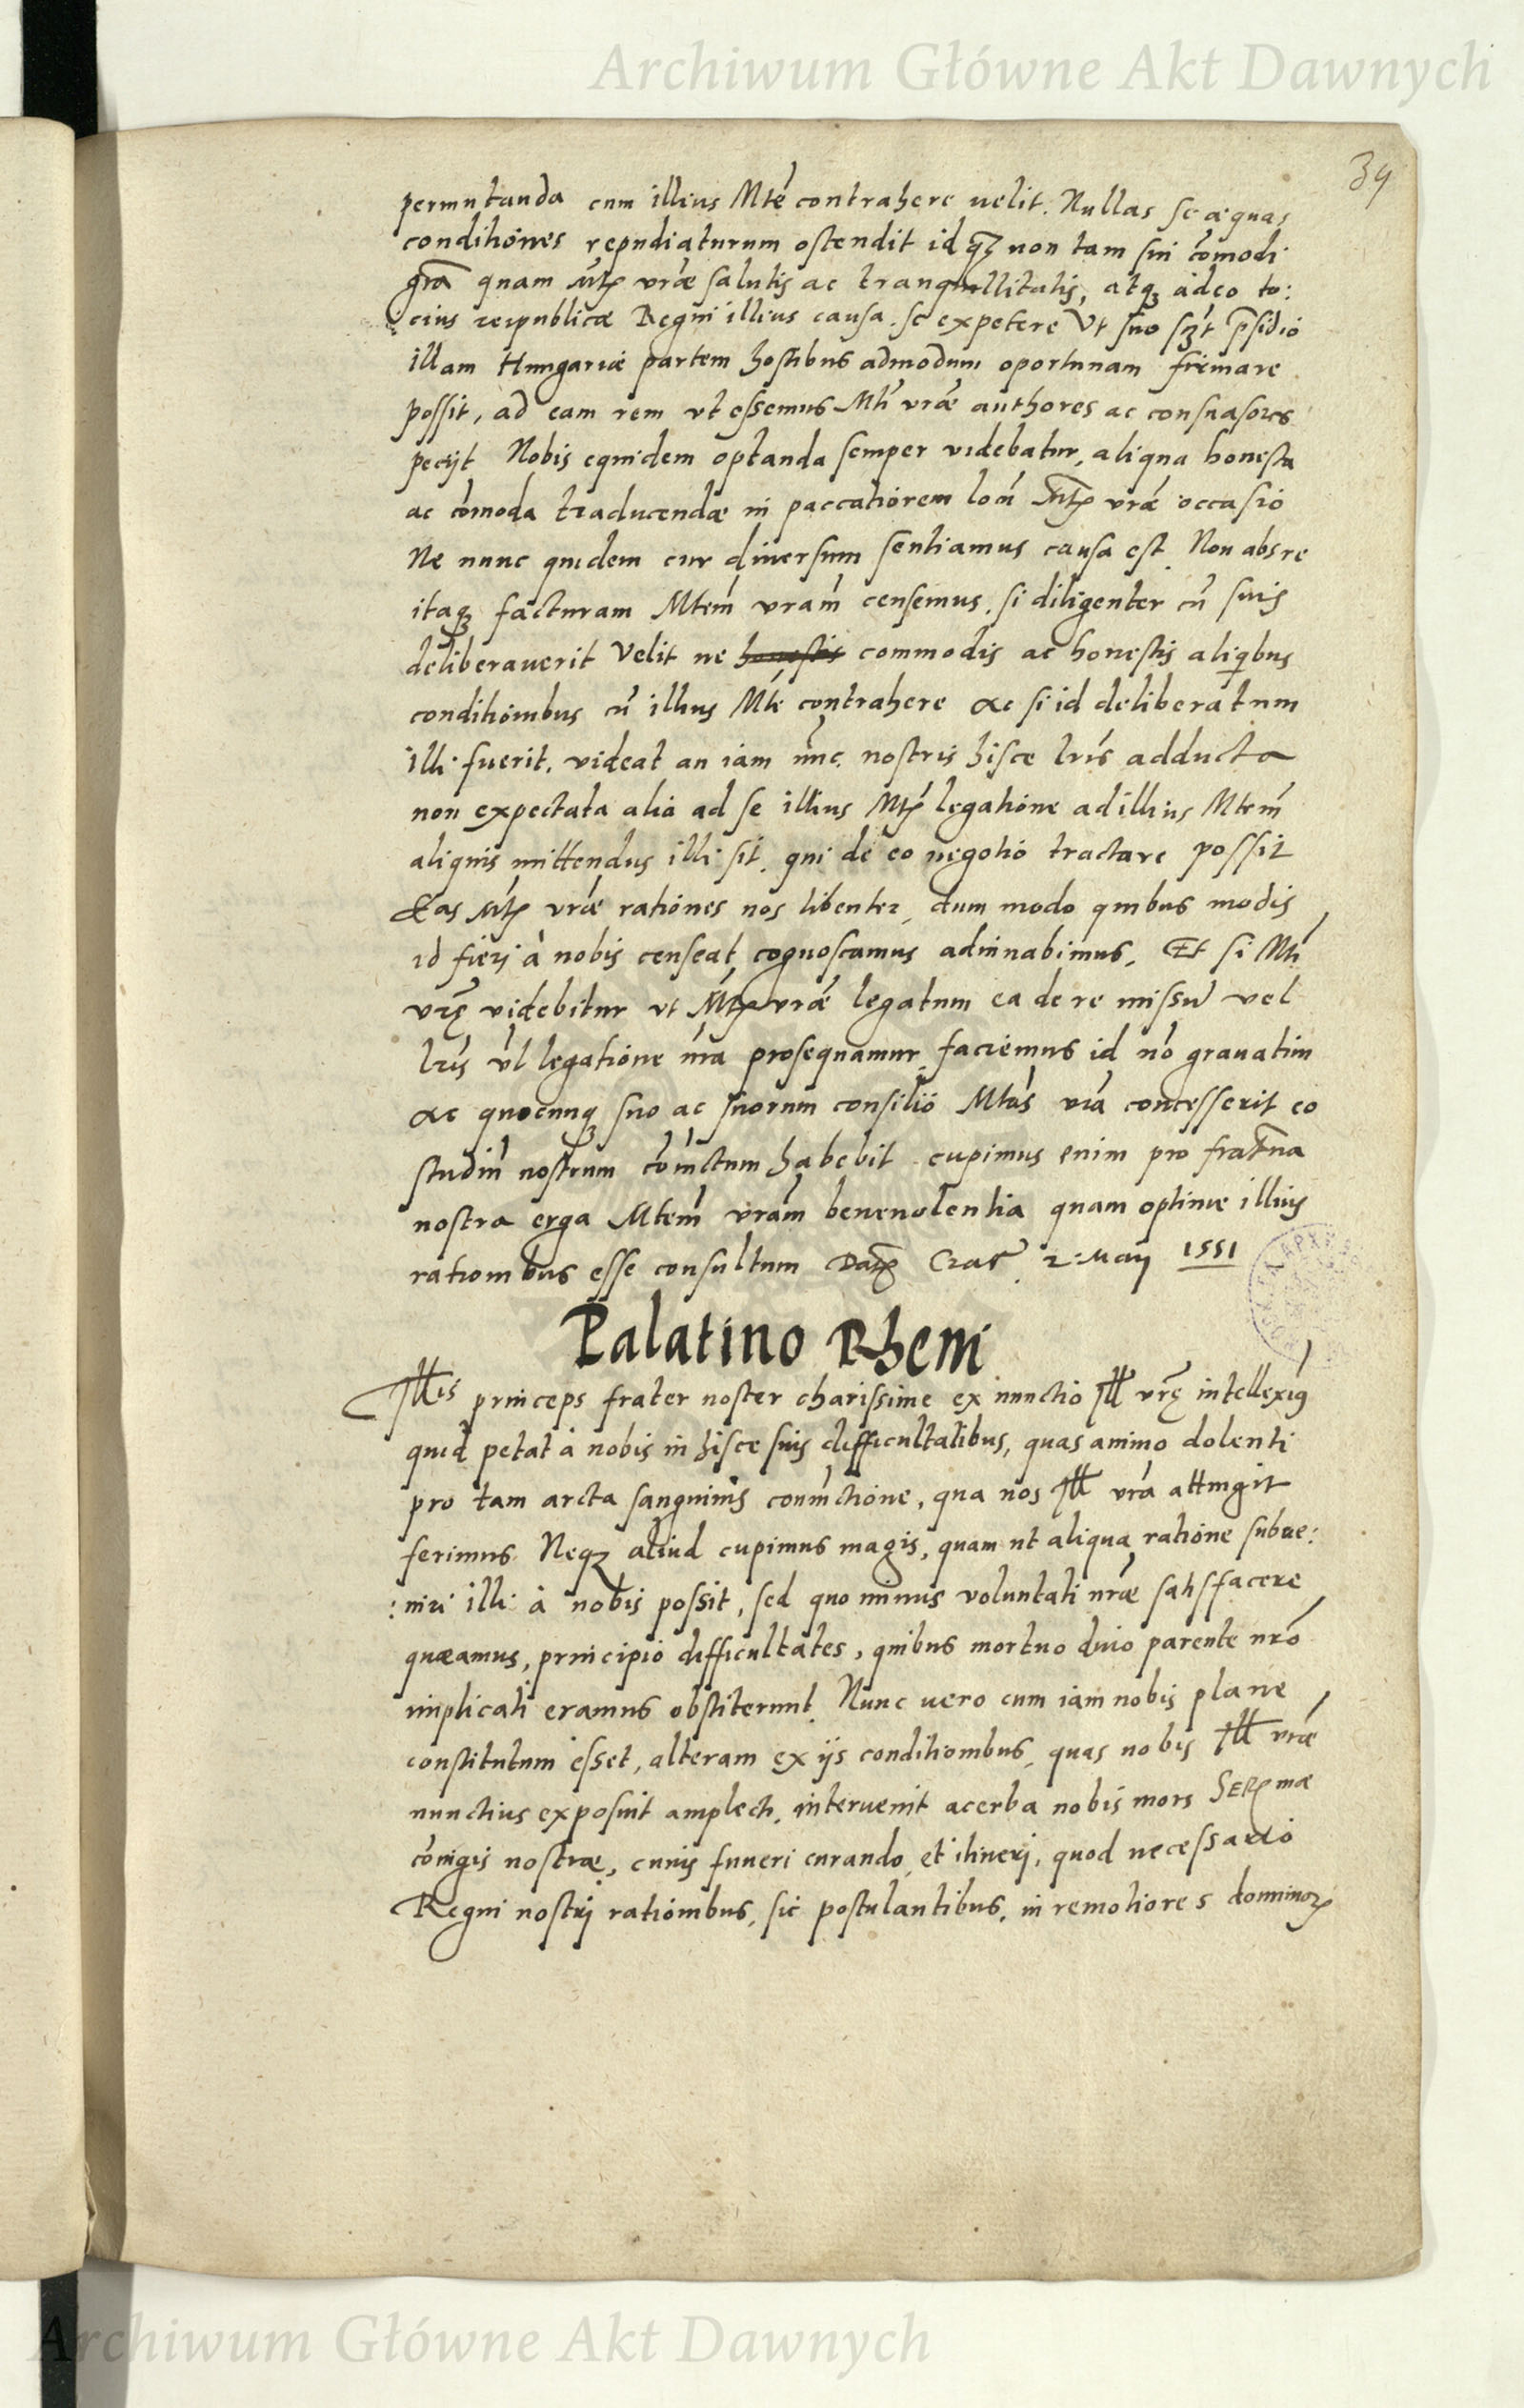 Archiwum Główne Akt Dawnych
39
permutanda cum illius Mte contrahere uelit. Nullas se æquas
conditiones repudiaturum ostendit idq3 non tam sui comodi
gra quam Mtis vræ salutis ac tranquillitatis, atq3 adeo to:
:cius reipublicæ Regni illius causa se expetere Vt suo pręsidio
illam Hungariæ partem hostibus admodum oportunam firmare
possit, ad eam rem vt essemus Mti vræ authores ac consuasores
pecijt Nobis equidem optanda semper videbatur, aliqua honesta
ac comoda traducendæ in paccatiorem locu Mtis vræ occasio
Ne nunc quidem cur diuersum sentiamus causa est. Non abs re
itaq3 facturam Mtem vram censemus, si diligenter cu suis
deliberauerit Velit ne honestis commodis ac honestis aliqbus
conditionibus cu illius Mte contrahere Ac si id deliberatum
illi fuerit, videat an iam nunc nostris hisce lris adducta
non expectata alia ad se illius Mtis legatione ad illius Mtem
aliquis mittendus illi sit, qui de eo negotio tractare possit
Eas Mtis vræ rationes nos libenter, dum modo quibus modis
id fieri à nobis censeat cognoscamus adiuuabimus. Et si Mti
vrę videbitur vt Mtis vræ legatum ea de re missu vel
lris vl legatione nra prosequamur, faciemus id no grauatim
Ac quocunq3 suo ac suorum consilio Mtas vra concesserit eo
studiu nostrum coniuctum habebit. cupimus enim pro fraterna
nostra erga Mtem vram beneuolentia quam optime illius
rationibus esse consultum Dat Crac 2. Maij 1551
Palatino Rheni
Illis princeps frater noster charissime ex nunctio Ill vrę intelleximus
quid petat à nobis in hisce suis difficultatibus, quas animo dolenti
pro tam arcta sanguinis coniuctione, qua nos Ill vra attingit
ferimus. Neq3 aliud cupimus magis, quam ut aliqua ratione subue:
:niri illi à nobis possit, sed quo minus voluntati nræ satisfacere
quæamus, principio difficultates, quibus mortuo diuo parente nro
implicati eramus obstiterunt. Nunc uero cum iam nobis plane
constitutum esset, alteram ex ijs conditionibus, quas nobis Ill vræ
nunctius exposuit amplecti, interuenit acerba nobis mors Sermæ
coniugis nostræ, cuius funeri curando, et itineri, quod necessario
Regni nostri rationibus, sic postulantibus, in remotiores dominior
Archiwum Główne Akt Dawnych